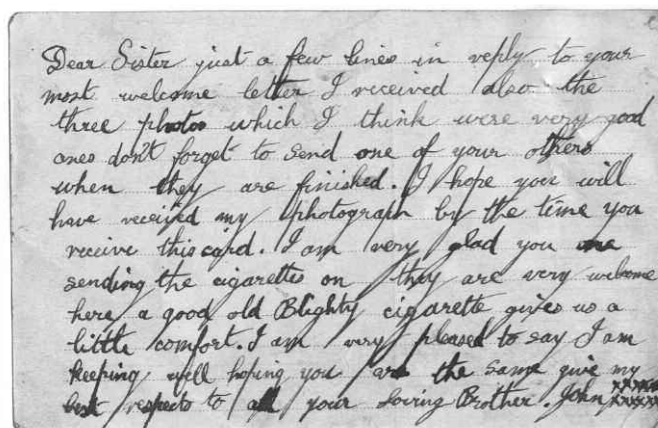 Dear Sister just a few lines in reply to your
most welcome letter I received also the
three photos which I think were very good
ones don't forget to send one of your others
when they are finished. I hope you will
have received my photograph by the time you
receive this card. I am very glad you are
sending the cigarettes on they are very welcome
here, a good old Blighty cigarette gives us a
little comfort. I am very pleased to say I am
keeping well hoping you are the same give my
best respects to all your loving Brother. John xxxxx
xxxxx